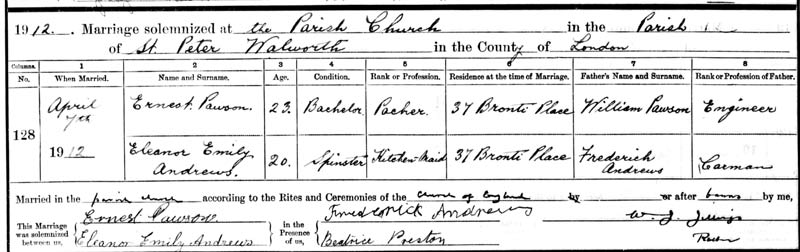 1912. Marriage solemnized at the Parish Church in the Parish
of St. Peter Walworth in the County of London
Columns. 1 2 3 4 5 6 7 8
No. When Married. Name and Surname. Age. Condition. Rank or Profession. Residence at the time of Marriage. Father's Name and Surname. Rank or Profession of Father.
128
April 7th 1912
Ernest Pawson. 23. Bachelor Packer. 37 Bronti Place William Pawson Engineer
Eleanor Emily Andrews. 20. Spinster Kitchen Maid 37 Bronti Place Frederick Andrews Carman
Married in the parish church according to the Rites and Ceremonies of the Church of England by or after banns by me,
This Marriage was solemnized between us,
Ernest Pawson
Eleanor Emily Andrews
in the Presence of us,
Frederick Andrews
Beatrice Preston
W. J.
Rector